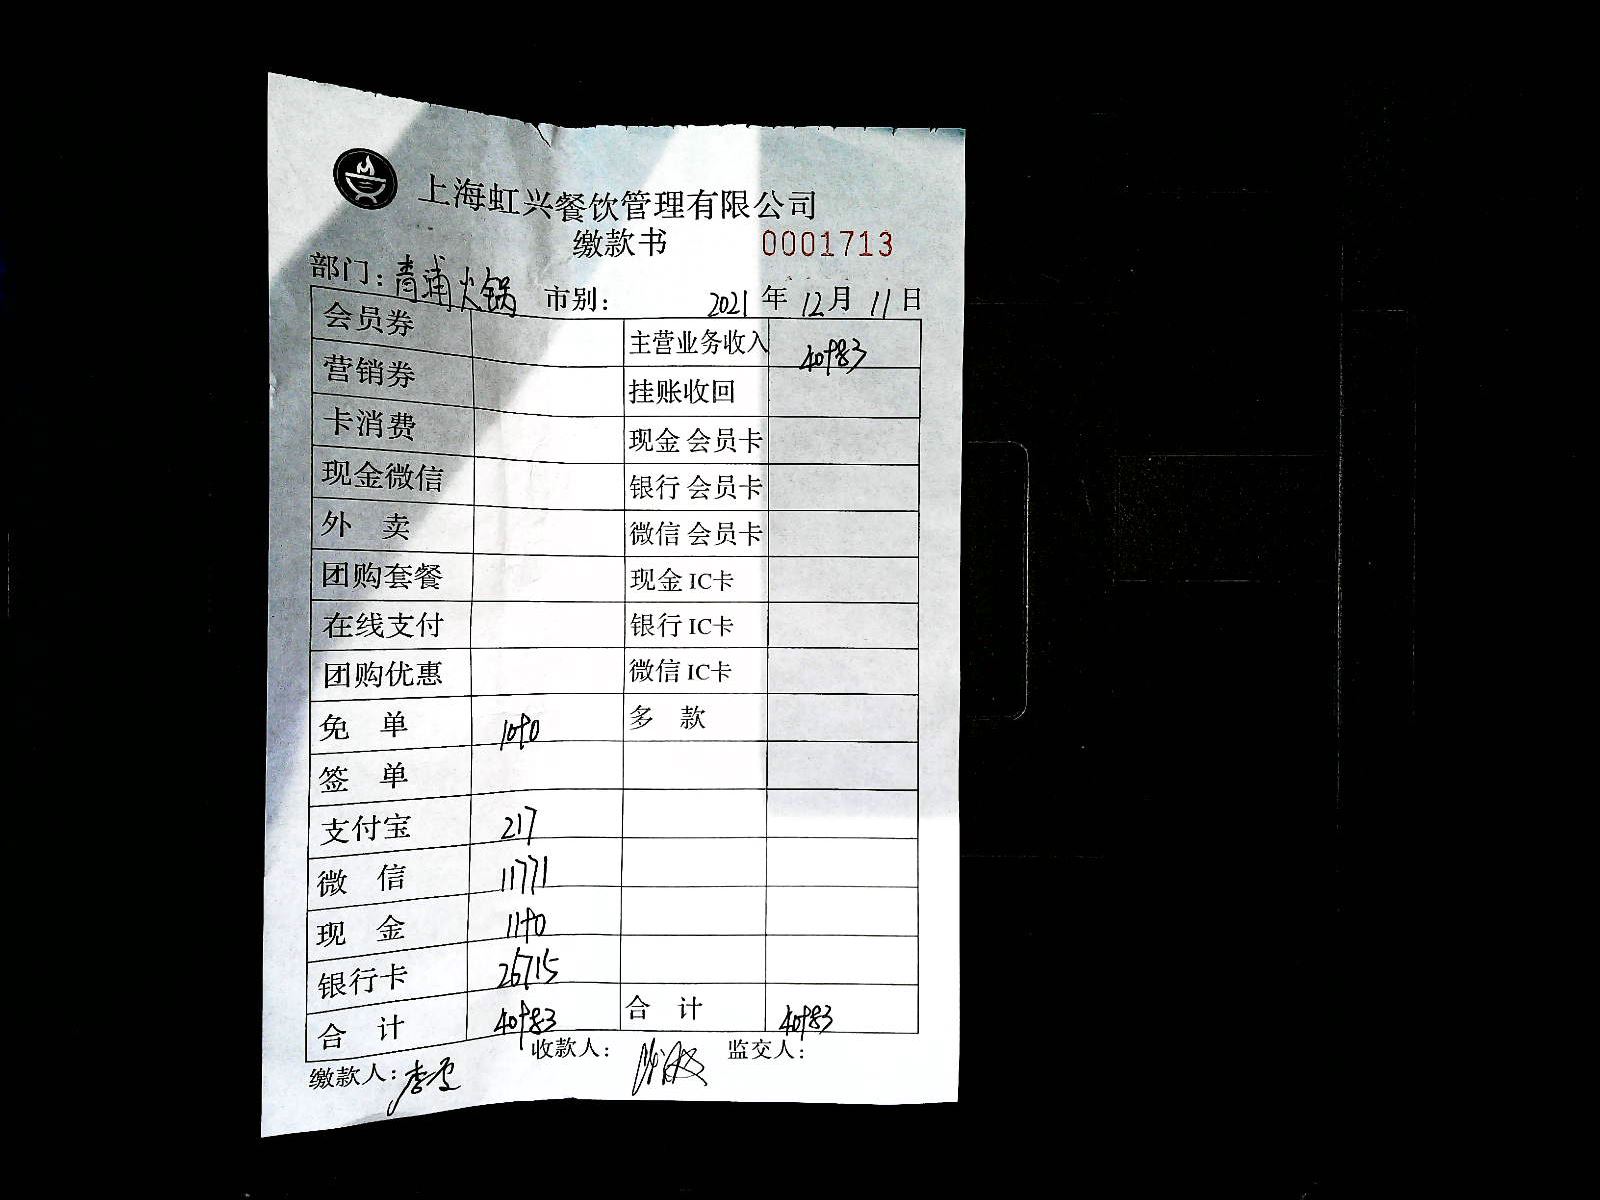 上海虹兴餐饮管理有限公司
缴款书 0001713
部门：青浦火锅 市别： 2021 年 12 月 11 日
会员券 主营业务收入 40983
营销券 挂账收回
卡消费 现金 会员卡
现金微信 银行 会员卡
外 卖 微信 会员卡
团购套餐 现金 IC卡
在线支付 银行 IC卡
团购优惠 微信 IC卡
免 单 1090 多 款
签 单
支付宝 217
微 信 11771
现 金 1190
银行卡 26715
合 计 40983 合 计 40983
缴款人：李 收款人： 监交人：